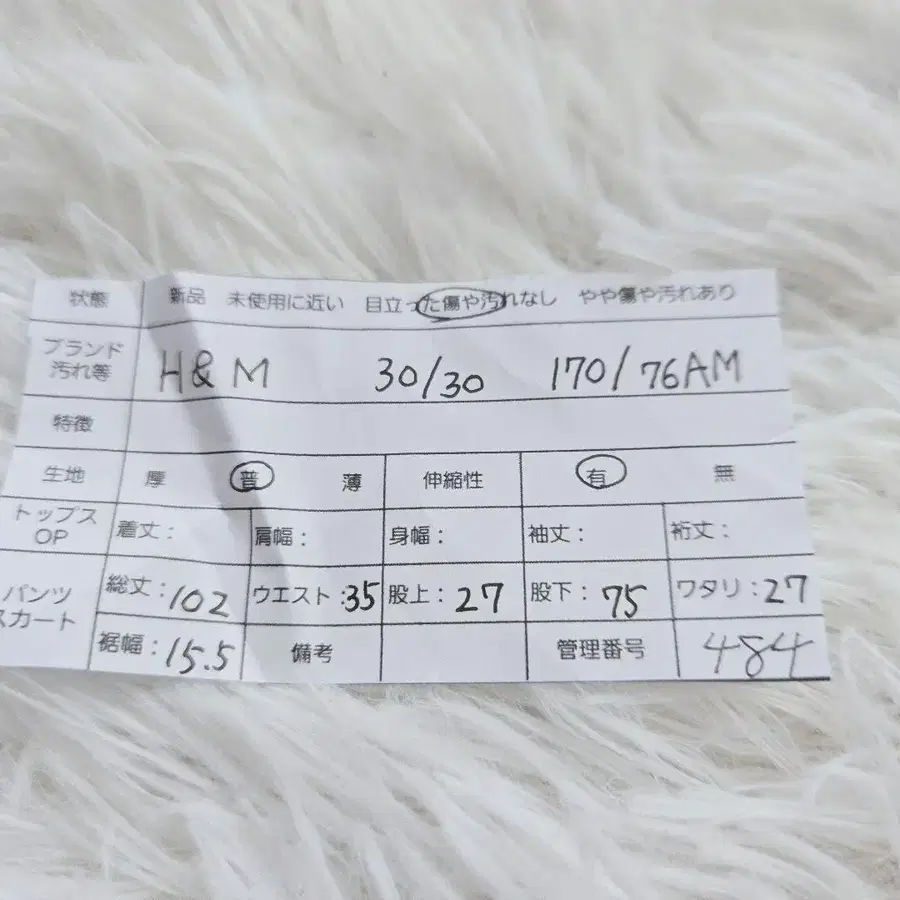 状態 新品 未使用に近い 目立った傷や汚れなし やや傷や汚れあり
ブランド
汚れ等 H&M 30/30 170/76AM
特徴
生地 厚 普 薄 伸縮性 有 無
トップス
OP 着丈: 肩幅: 身幅: 袖丈: 裄丈:
パンツ
スカート 総丈:102 ウエスト:35 股上:27 股下:75 ワタリ:27
裾幅:15.5 備考 管理番号 484